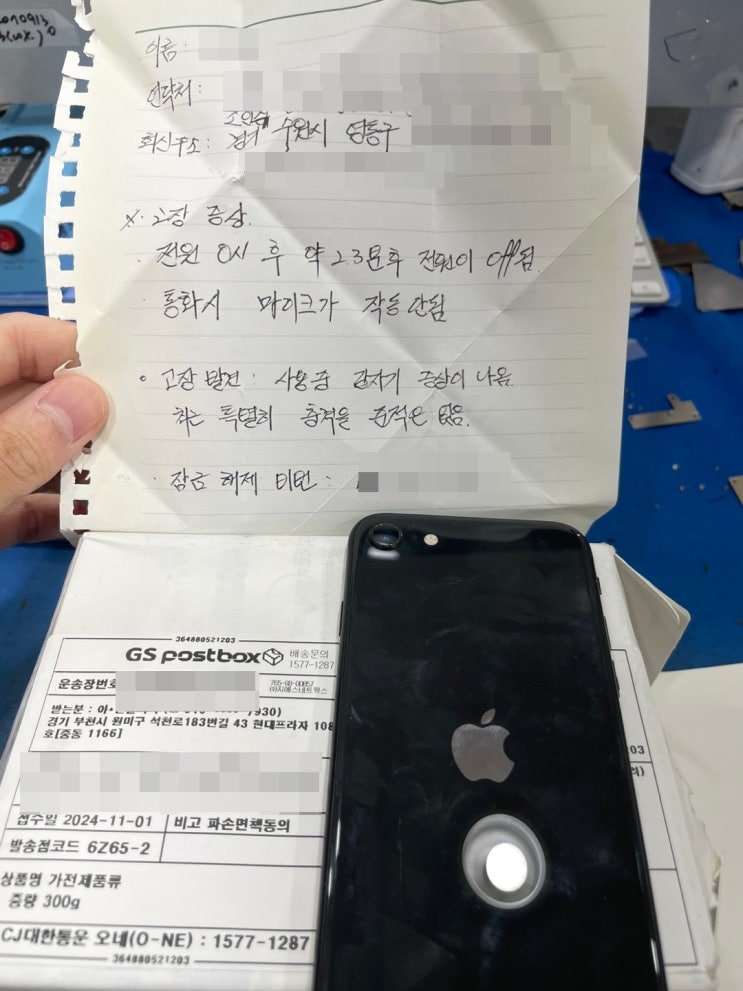 이름:
연락처:
회신주소: 수원시 영통구
※. 고장 증상.
· 전원 on시 후 약 2.3분후 전원이 off됨.
· 통화시 마이크가 작동안됨
· 고장 발견: 사용중 갑자기 증상이 나옴.
특별히 충격을 준적은 없음.
· 잠금 해제 비번:
364880521203
GS postbox 배송문의
1577-1287
운송장번호
765-88-00857
㈜지에스네트웍스
받는분 :
경기 부천시 원미구 석천로183번길 43 현대프라자 108
호[중동 1166]
접수일 2024-11-01 비고 파손면책동의
발송점코드 6Z65-2
상품명 가전제품류
중량 300g
CJ대한통운 오네(O-NE) : 1577-1287
364880521203